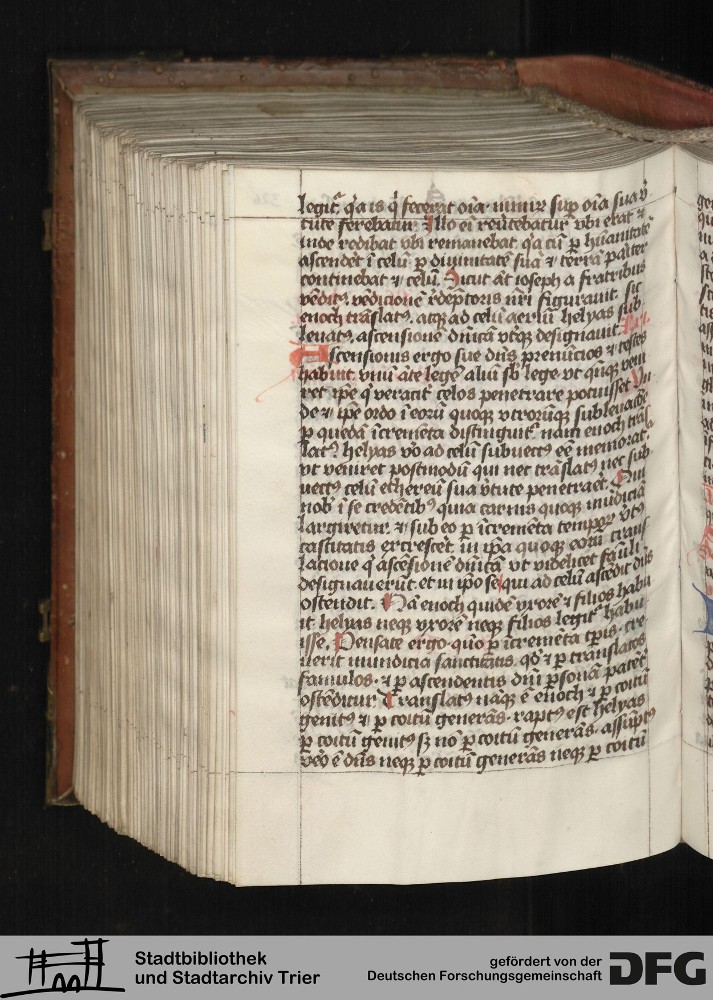 legit̄. q̄a is q̄ fecerat oīa nimir sup̄ oīa sua v̄
tute ferebatur. Illo eī reūtebatur vbi erat ⁊
inde redibat vbi remanebat. q̄a cū p̄ hūanitatē
ascendēt ī celū p̄ diuinitatē suā ⁊ terrā pariter
continebat ⁊ celū. Sicut āt ioseph a fratribus
vēditꝰ. vēdicionē rēdēptoris nr̄i figurauit. sic
enoch trāslatꝰ. atqꝫ ad celū aeriū helyas sub
leuatꝰ. ascensionē dn̄icā vtqꝫ designauit.
Ascensionis ergo sue dn̄s prenūcios ⁊ testes
habuit. vnū āte legē aliū sb̄ lege. vt quqꝫ veni
ret ip̄e q̄ veracit̄ celos penetrare potuisset. Vn
de ⁊ ip̄e ordo ī eorū quoqꝫ vtrorūqꝫ subleuacōe
p̄ quedā īcremēta distinguit̄. nam enoch trās
latꝰ. helyas v̄o ad celū subuectꝰ eē memorat̄.
vt veniret postmodū qui nec trāslatꝰ nec sub
uectꝰ celū ethereū sua v̄tute penetraret. Qui
nob̄ ī se credētibꝰ quia carnis quoqꝫ mūdiciā
largiretur. ⁊ sub eo p̄ īcremēta tempoꝝ v̄tꝰ
castitatis excresceret. in ip̄a quoqꝫ eorū trans
lacione q̄ ascēsionē dn̄icā vt videlicet fāuli
designauerūt. et in ip̄o se qui ad celū ascēdit dn̄s
ostendit. Nā enoch quidē vxorē ⁊ filios habu
it. helyas neqꝫ vxorē neqꝫ filios legit̄ habu
isse. Pensate ergo quō p̄ īcremēta tp̄is. cre
uerit mundicia sanctitatis. qd̄ ⁊ p̄ translatos
famulos. ⁊ p̄ ascendentis dn̄i p̄sonā patēt̄
ostēditur. Translatꝰ nāqꝫ ē enoch ⁊ p̄ coitū
genitꝰ ⁊ p̄ coitū generās. raptꝰ est helyas
p̄ coitū genitꝰ sꝫ nō p̄ coitū generās. assūptꝰ
vēo ē dn̄s neqꝫ p̄ coitū generās neqꝫ p̄ coitū
Stadtbibliothek
und Stadtarchiv Trier
gefördert von der
Deutschen Forschungsgemeinschaft
DFG